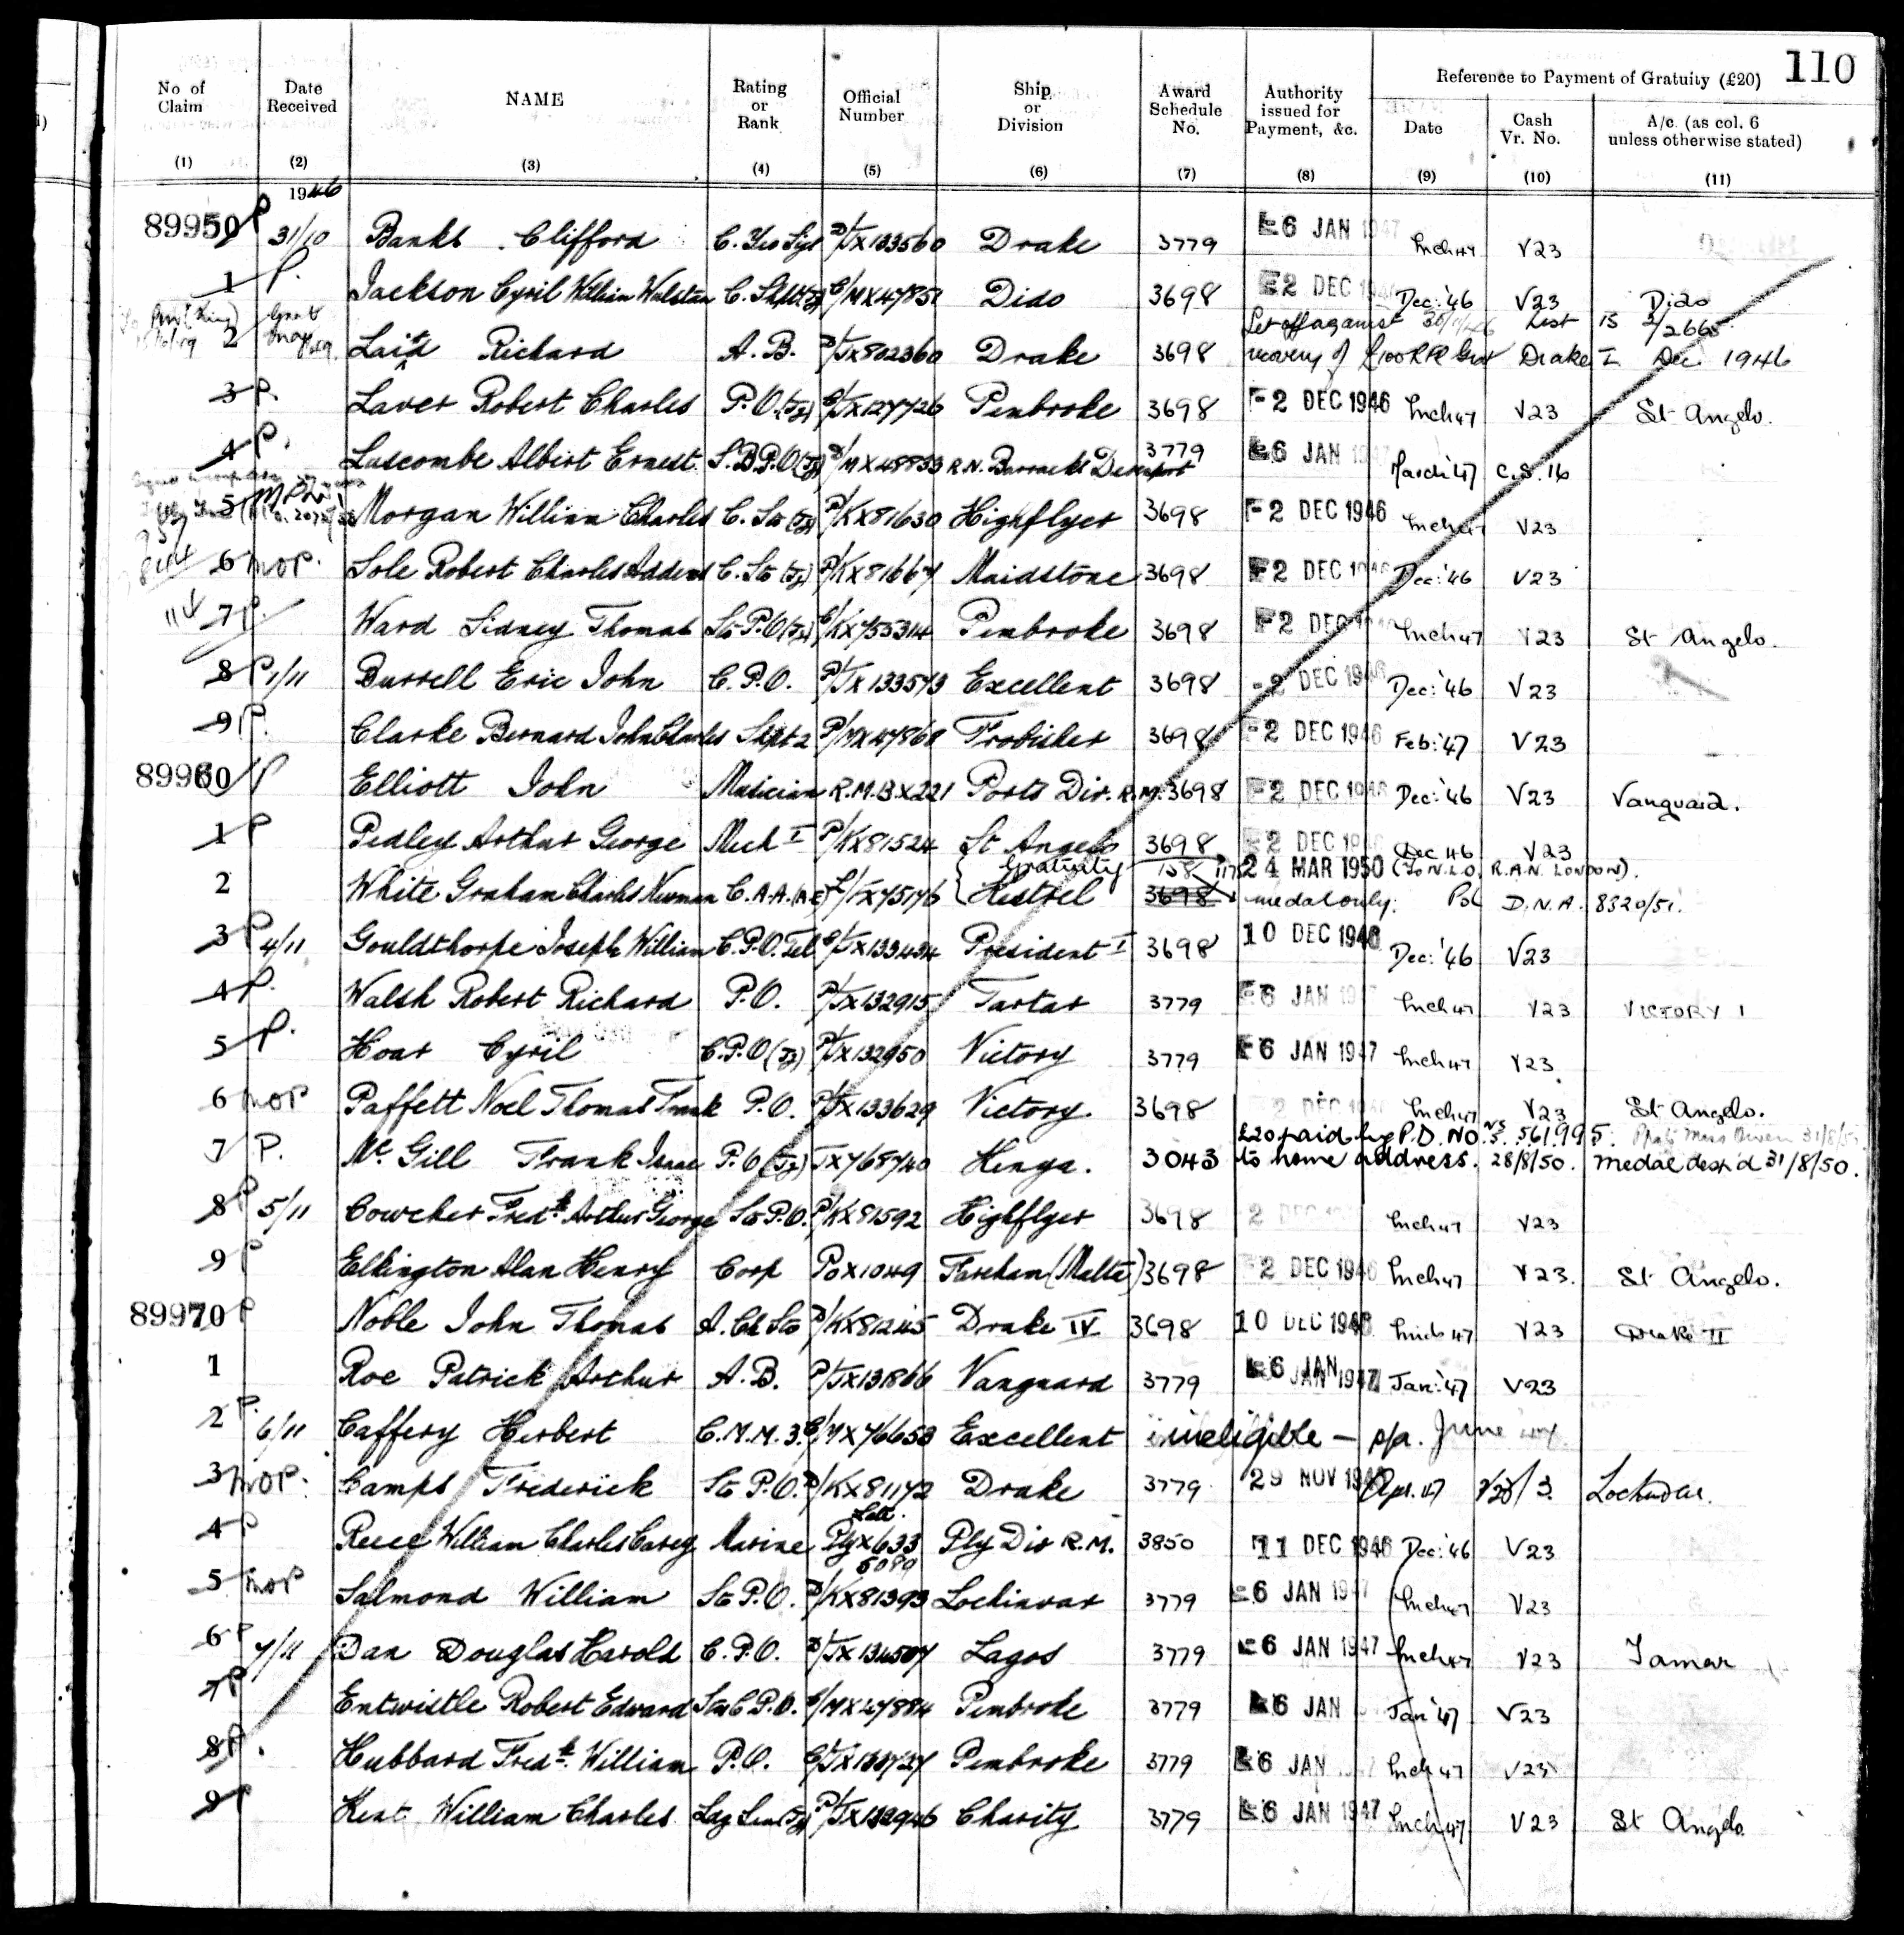 110
No of Claim Date Received NAME Rating or Rank Official Number Ship or Division Award Schedule No. Authority issued for Payment, &c. Reference to Payment of Gratuity (£20) Date Cash Vr. No. A/c. (as col. 6 unless otherwise stated)
(1) (2) (3) (4) (5) (6) (7) (8) (9) (10) (11)
1946
89950 P 31/10 Banks Clifford C. Yeo Sigs D/JX133560 Drake 3779 6 JAN 1947 Mch 47 V23
1 P. Jackson Cyril William Walstan C/MX47851 Dido 3698 2 DEC Dec: '46 V23 Dido
Set off against 30/11/46 List 15 2/2665
2 Laird Richard A.B. D/JX802360 Drake 3698 recovery of £100 RFR Grat Drake I Dec 1946
3 P. Laver Robert Charles P.O.(Ty) C/JX127726 Pembroke 3698 2 DEC 1946 Mch 47 V23 St Angelo.
4 P. Luscombe Albert Ernest S.B.P.O(Ty) D/MX48833 R.N. Barracks Devonport 3779 6 JAN March '47 C.S. 16
5 Morgan William Charles C. Sto (Ty) P/KX81630 Highflyer 3698 2 DEC 1946 Mch 47 V23
6 MOP. Sole Robert Charles Addens C. Sto (Ty) P/KX81667 Maidstone 3698 2 DEC 1946 Dec: '46 V23
7 P. Ward Sidney Thomas Sto P.O(Ty) C/KX75334 Pembroke 3698 2 DEC Mch 47 V23 St Angelo.
8 P 1/11 Burrell Eric John C.P.O. P/JX133573 Excellent 3698 2 DEC 1946 Dec: '46 V23
9 P. Clarke Bernard John Charles Shpt 2 P/MX47868 Frobisher 3698 2 DEC 1946 Feb: '47 V23
89960 P Elliott John Musician R.M.B.X221 Ports Div. R.M. 3698 2 DEC 1946 Dec: '46 V23 Vanguard.
1 P Pedley Arthur George Mech I P/KX81524 St Angelo 3698 2 DEC 1946 Dec 46 V23
Gratuity 158 24 MAR 1950 (To N.L.O. R.A.N. LONDON).
2 White Graham Charles Newman C.A.A.(AE) L/FX75176 Kestrel 3698 medal only. D.N.A. 8320/51.
3 P 4/11 Gouldthorpe Joseph William C.P.O. Tel C/JX133434 President I 3698 10 DEC 1946 Dec: '46 V23
4 P. Walsh Robert Richard P.O. P/JX132915 Tartar 3779 6 JAN Mch 47 V23 VICTORY I
5 P. Hoar Cyril C.P.O(Ty) P/JX132950 Victory 3779 6 JAN 1947 Mch 47 V23
6 MOP Paffett Noel Thomas Frank P.O. P/JX133629 Victory. 3698 2 DEC Mch 47 V23 St Angelo.
£20 paid by P.D. No. 561995.
7 P. Mc Gill Frank Isaac P.O (Ty) JX768740 Kenya. 3043 to home address. 28/8/50. medal desp'd 31/8/50.
8 P 5/11 Cowcher Fredk Arthur George Sto P.O. P/KX81592 Highflyer 3698 2 DEC Mch 47 V23
9 P Elkington Alan Henry Corp PoX1049 Fareham (Malta) 3698 2 DEC 1946 Mch 47 V23. St Angelo.
89970 P Noble John Thomas A. Ch Sto D/KX81245 Drake IV 3698 10 DEC 1946 Mch 47 V23 Drake II
1 Roe Patrick Arthur A.B. P/JX131866 Vanguard 3779 6 JAN 1947 Jan: '47 V23
2 P. 6/11 Caffery Herbert C.M.M. 3. C/MX76653 Excellent ineligible - June
3 MOP. Camps Frederick Sto P.O. D/KX81172 Drake 3779 29 NOV 1946 Apr. 47 V23/3. Lochinvar.
4 P Reece William Charles Carey Marine PlyX633 Ply Div R.M. 3850 11 DEC 1946 Dec: '46 V23
5 MOP Salmond William Sto P.O. D/KX81393 Lochinvar 3779 6 JAN 1947 Mch 47 V23
6 P 7/11 Dan Douglas Harold C.P.O. D/JX134507 Lagos 3779 6 JAN 1947 Mch 47 V23 Tamar
7 P Entwistle Robert Edward C.P.O. C/MX47884 Pembroke 3779 6 JAN Jan '47 V23
8 P. Hubbard Fredk. William P.O. C/JX133727 Pembroke 3779 6 JAN Mch 47 V23
9 P Kent William Charles Ldg Sea(Ty) P/JX132946 Charity 3779 6 JAN 1947 Mch 47 V23 St Angelo.